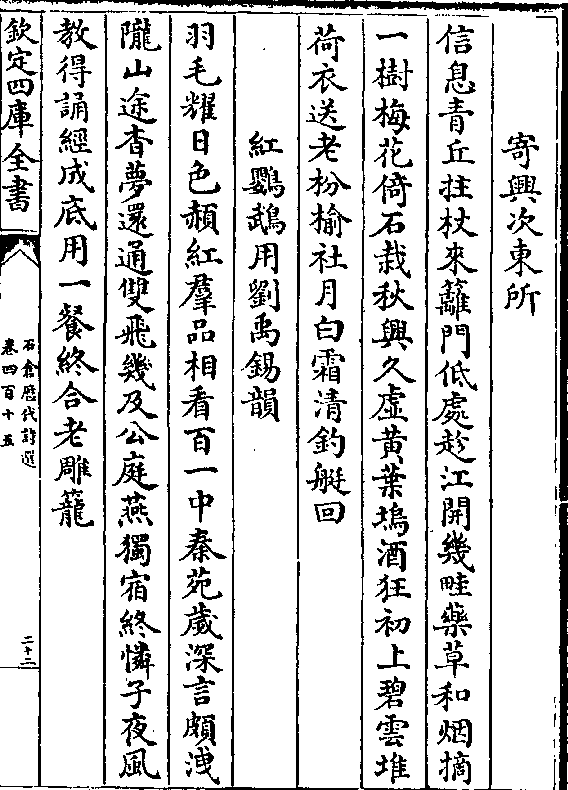 寄興次東所
信息青丘拄杖來籬門低處趁江開幾畦藥草和烟摘
一樹梅花倚石栽秋興久虛黃葉塢酒狂初上碧雲堆
荷衣送老枌榆社月白霜清釣艇回
紅鸚鵡用劉禹錫韻
羽毛耀日色頳紅羣品相看百一中秦苑歲深言頗洩
隴山途杳夢還通雙飛幾及公庭燕獨宿終憐子夜風
教得誦經成底用一餐終合老雕籠
欽定四庫全書
石倉歷代詩選
卷四百十五
二十二